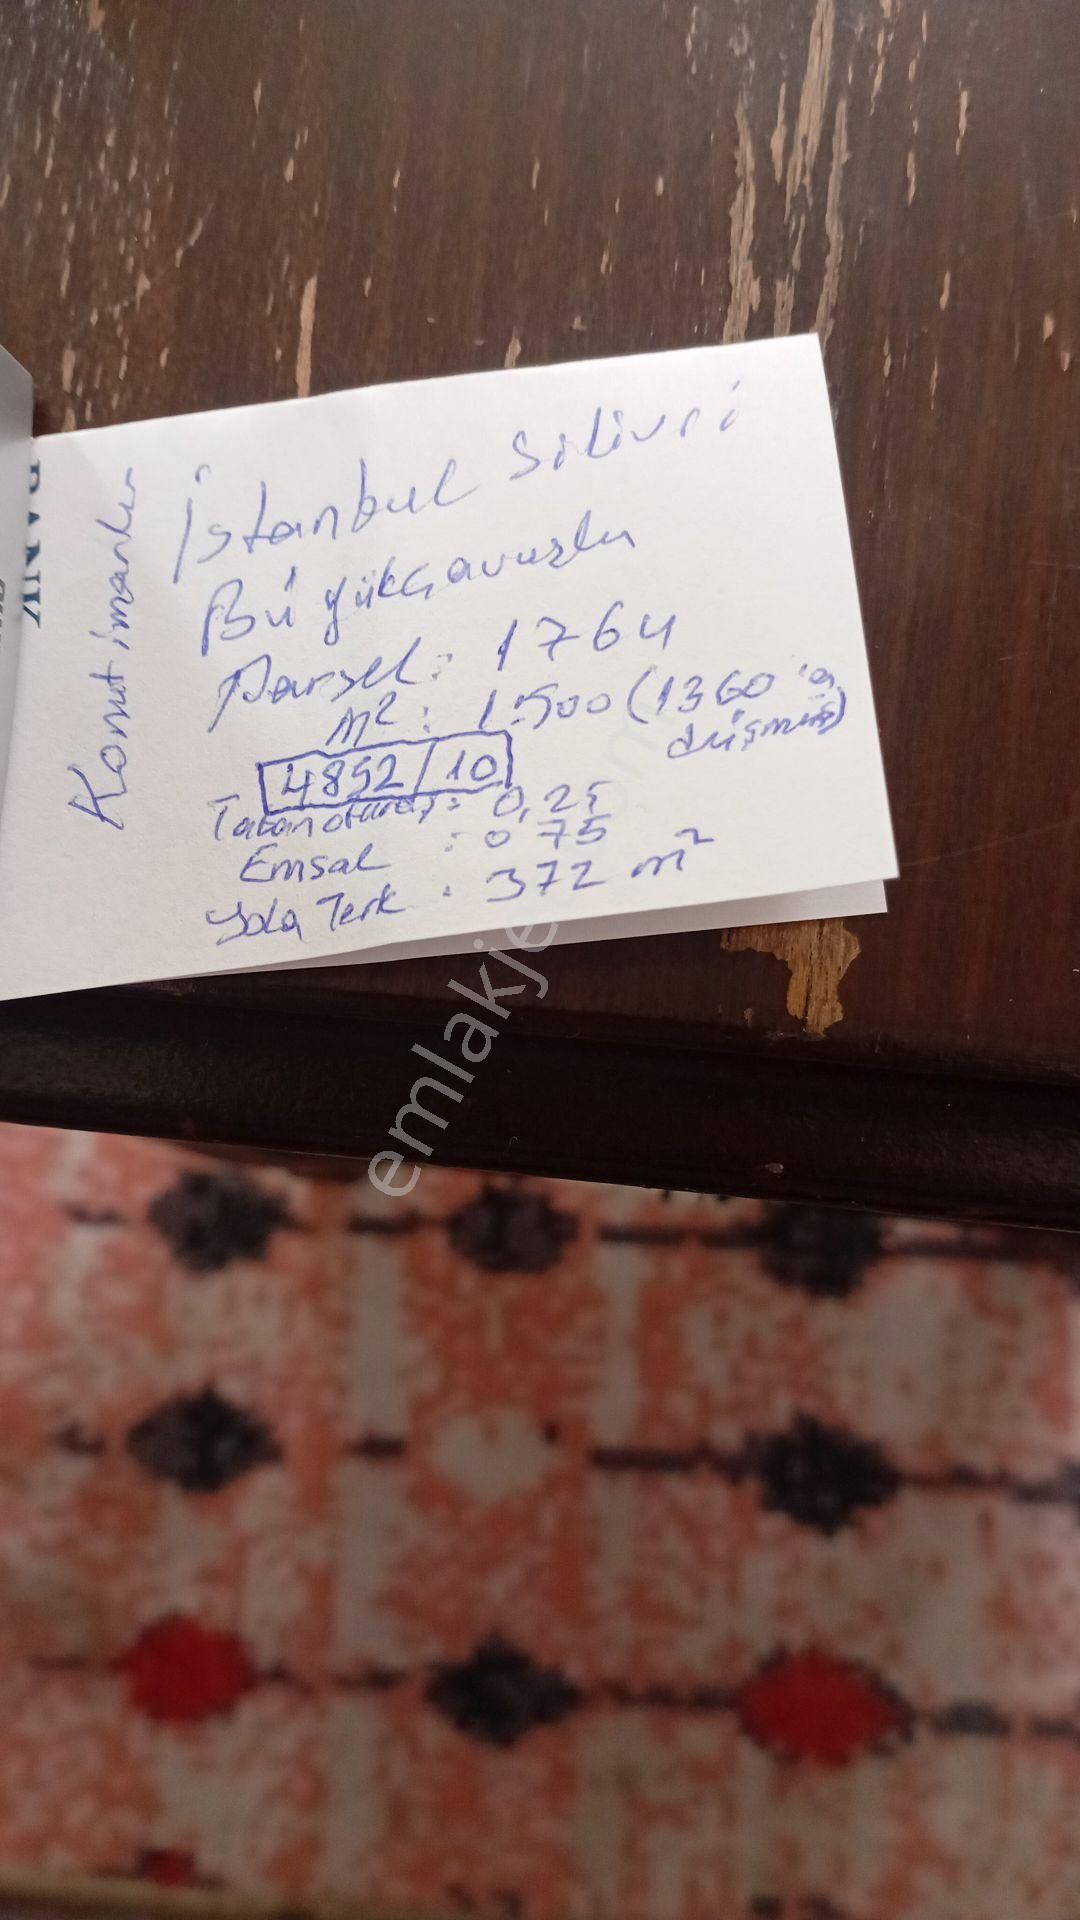 Konut imarlı
İstanbul Silivri
Büyükçavuşlu
Parsel: 1764
m²: 1500 (1360 'a düşmüş)
4852/10
Taban oturaj: 0,25
Emsal : 0 75
Yola Terk : 372 m²
BANK
emlakje